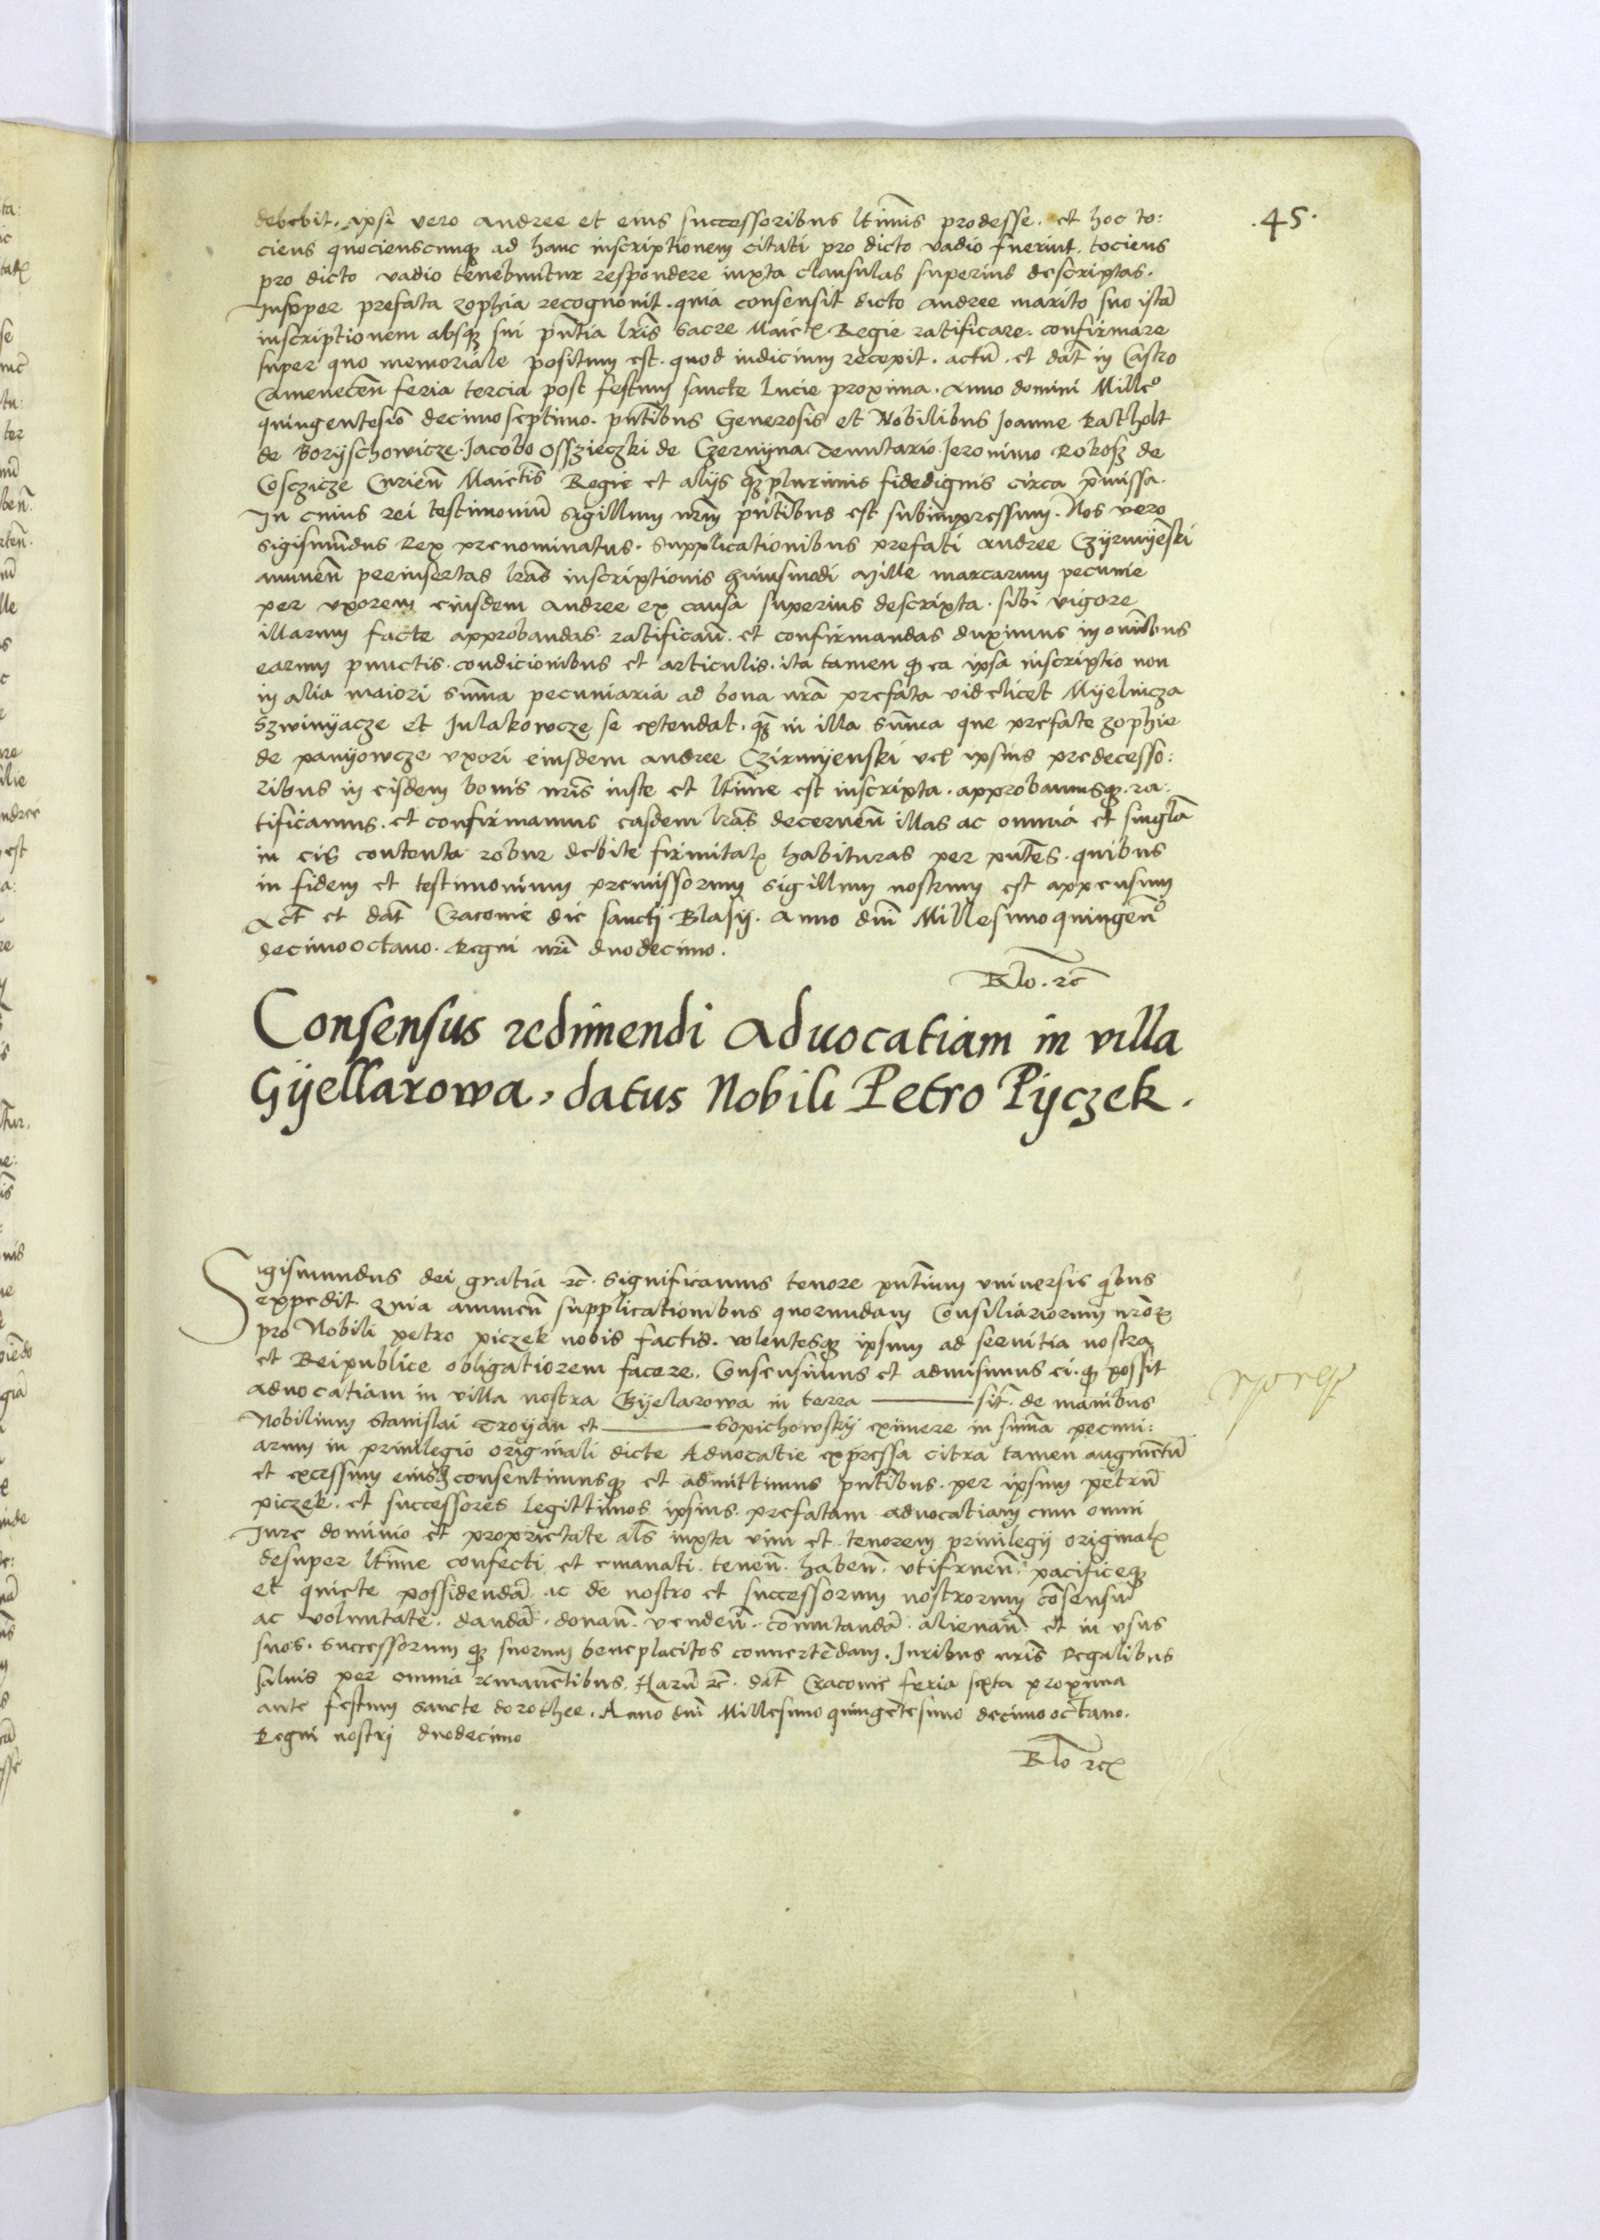 .45.
debebit. ipsi vero andree et eius successoribus ltimis prodesse. et hoc to:
ciens quocienscunqz ad hanc inscriptionem citati pro dicto vadio fuerint. tociens
pro dicto vadio tenebuntur respondere iuxta clausulas superius descriptas.
Insuper prefata zophia recognovit. quia consensit dicto andree marito suo istā
inscriptionem absqz sui pn̄tia lris sacre Maiet Regie ratificare. confirmare
super quo memoriale positum est. quod iudicium recepit. actū. et dat̄ in Castro
Camenecen̄ feria tercia post festum sancte Lucie proxima. anno domini Millēo
quingentesiō decimoseptimo. pn̄tibus Generosis et Nobilibus Joanne Katholt
de Boryschowicze. Jacobo Osszieczki de Czernyna Tenutario. Jeronimo Rokosz de
Cosczicze Curien̄ Maiet̄is Regie et alijs qz plurimis fidedignis circa pmissa.
In cuius rei testimoniū sigillum nr̄m pn̄tibus est subimpressum. Nos vero
Sigismūdus Rex prenominatus. supplicationibus prefati andree Czyrmyēski
annuen̄ preinsertas lrās inscriptionis huiusmodi Mille marcarum pecunie
per uxorem eiusdem andree ex causa superius descripta. sibi vigore
illarum facte approbandas. ratifican̄. et confirmandas duximus in om̄ibus
earum punctis. condicionibus et articulis. ita tamen q ea ipsa inscriptio non
in alia maiori sum̄a pecuniaria ad bona nr̄a prefata videlicet Myelnicza
Szwinyacze et Julakowcze se extendat. qz in illa sum̄a que prefate zophie
de panyowcze uxori eiusdem andree Czirmyenski vel ipsius predecesso:
ribus in eisdem bonis nr̄is iuste et ltīme est inscripta. approbamusqz. ra:
tificamus. et confirmamus easdem lrās decernen̄ illas ac omnia et singlā
in eis contenta robur debite firmitat habituras per pn̄tes. quibus
in fidem et testimonium premissorum sigillum nostrum est appensum
Act̄ et dat̄ Cracovie die sancti Blasij. Anno dn̄i Millesimo quingen̄o
decimooctavo. Regni nr̄i duodecimo.
Rlo. rc̄
Consensus redimendi Advocatiam in villa
Gyellarowa, datus Nobili Petro Pyczek.
Sigismundus dei gratia rc̄. Significamus tenore pn̄tium universis qibus
expedit Quia annuen̄ supplicationibus quorundam Consiliariorum nr̄or
pro Nobili petro piczek nobis factis. volentesqz ipsum ad servitia nostra
et Reipublice obligatiorem facere. Consensimus et admisimus ei. q possit
advocatiam in villa nostra Gyelarowa in terra ——— sit̄. de manibus
Nobilium Stanislai Troyan et ——— Sopichowskÿ eximere in sum̄a pecuni:
arum in privilegio originali dicte Advocatie expressa citra tamen augmētū
et excessum eiusdē consentimusqz et admittimus pn̄tibus. per ipsum petrū
piczek. et successores legittimos ipsius. prefatam advocatiam cum omni
Jure dominio et proprietate als̄ iuxta vim et tenorem privilegij original
desuper ltīme confecti et emanati. tenen̄. haben̄. utifruen̄. pacificeqz
et quiete possidendā. ac de nostro et successorum nostrorum cōsensu
ac voluntate. dandā. donan̄. venden̄. com̄utandā. alienan̄. et in usus
suos. successorum qz suorum beneplacitos convertēdam. Juribus nr̄is Regalibus
salvis per omnia remanētibus. Harū rc̄. dat̄ Cracovie feria sexta proxima
ante festum sancte dorothee. Anno dn̄i Millesimo quingētesimo decimooctavo.
Regni nostri duodecimo
Rlo rc̄